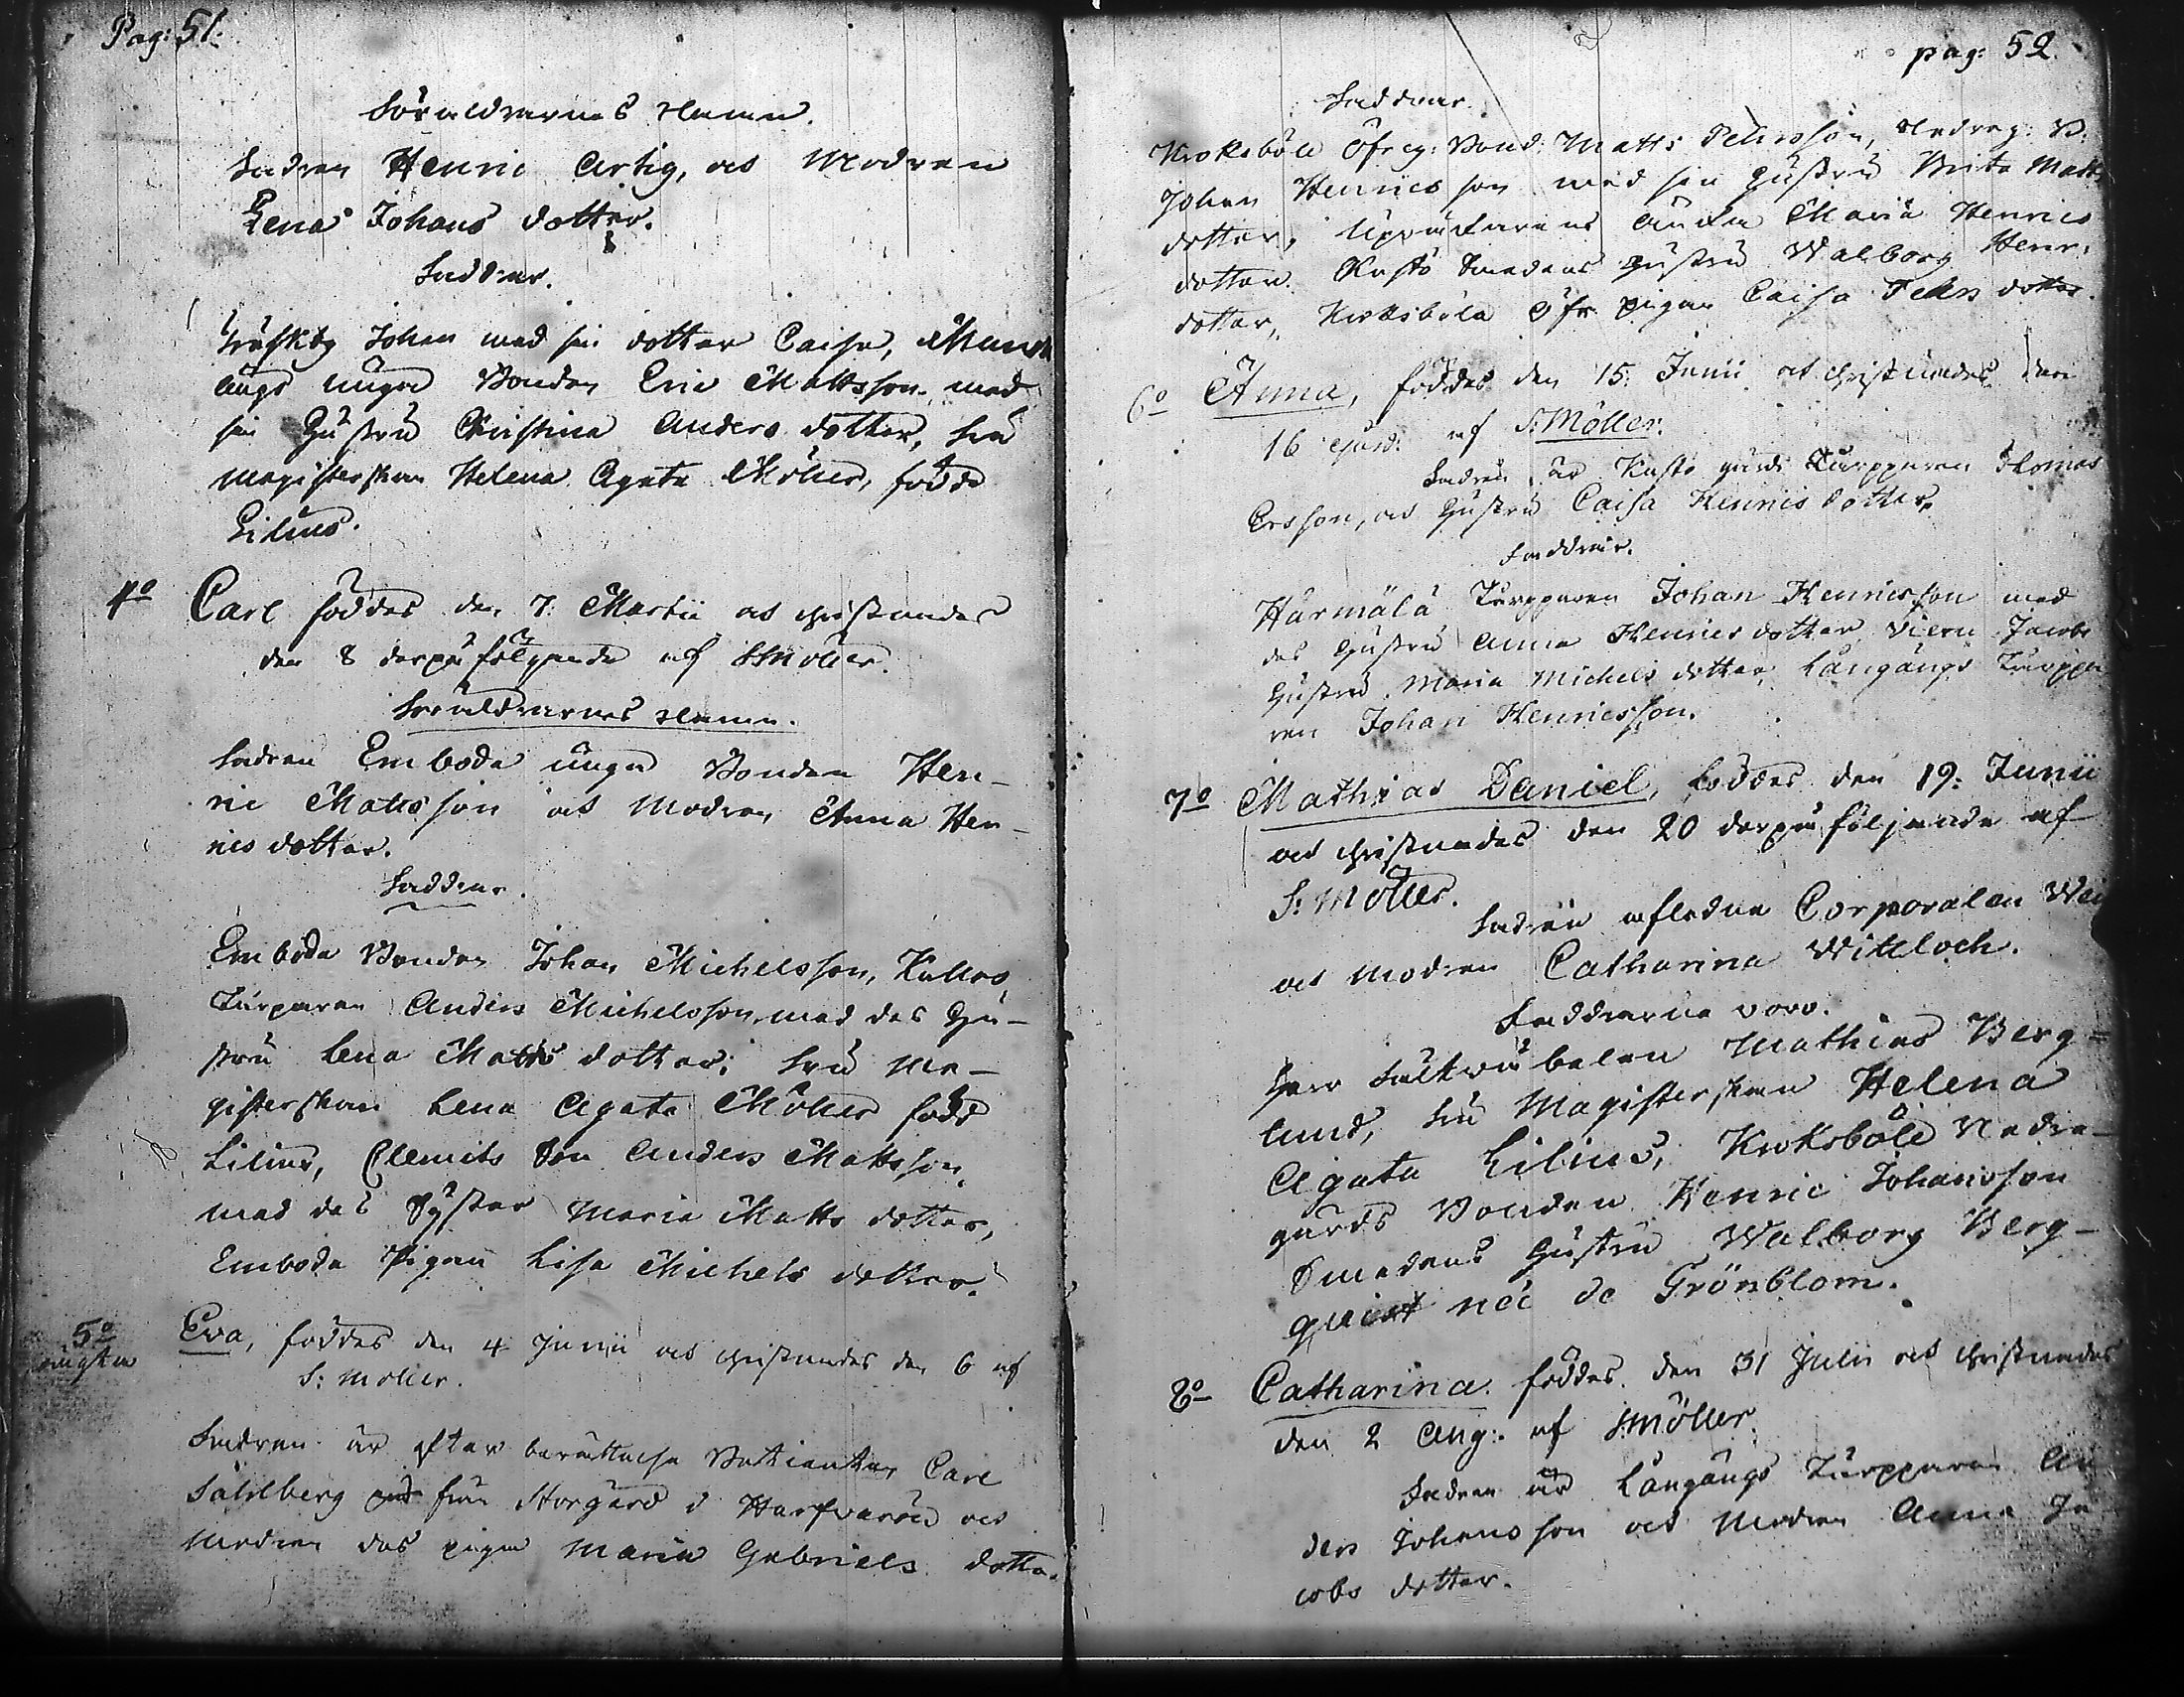 Pag: 51.
Föräldrarnes Namn.
Fadren Henric Artig, och Modren
Lena Johans dotter.
Faddrar.
Träskby Johan med sin dotter Caisa,
ängs unga Bonden Eric Mattsson med
sin Hustru Christina Anders dotter, Fru
Magisterskan Helena Agata Möller, född
Lilius.
4o Carl föddes den 7: Martii och christnades
den 8 derpå följande af S Möller.
Föräldrarnes Namn.
Fadren Emboda unga Bonden Hen-
ric Mattsson och Modren Anna Hen-
rics dotter.
Faddrar.
Emboda Bonden Johan Michelsson, Kullas
Torparen Anders Michelsson med des Hu-
stru Lena Matts dotter; Fru Ma-
gisterskan Lena Agata Möller född
Lilius, Clemets Son Anders Mattsson,
med des Syster Maria Matts dotter,
Emboda Pigan Lisa Michels dotter.
5o
oägta
Eva, föddes den 4 Junii och christnades den 6 af
S: Möller.
Fadren är efter berättelse Betjenten Carl
Sahlberg från Storgård i och
Modren des pigan Maria Gabriels dotter.
pag: 52.
Faddrar.
Kroksböle Öfreg: Bond: Matts Pehrsson, Nedreg: B:
Johan Henricsson med sin Hustru Brita Matts
dotter, Enka Maria Henrics
dotter. Kastö Smedens Hustru Walborg Henr:
dotter, Kroksböle Öfre pigan Caisa Pehrs dotter.
6o Anna, föddes den 15: Junii och christnades den
16 ejusd: af S: Möller.
Fadren är Kastö gårds Torpparen Thomas
Ersson, och Hustru Caisa Henrics dotter.
Faddrar.
Härmälä Torpparen Johan Henricsson med
des Hustru Anna Henrics dotter, Jacobs
Hustru Maria Michels dotter, Långängs Torppa
ren Johan Henricsson.
7o Mathias Daniel, föddes den 19: Junii
och christnades den 20 derpå följande af
S: Möller.
Fadren afledne Corporalen
och Modren Catharina Wittloch.
Faddrarne voro.
Herr Fältväbelen Mathias Berg=
lund, Fru Magisterskan Helena
Agata Lilius, Kroksböle Nedre-
gårds Bonden Henric Johansson
Smedens Hustru Walborg Berg-
quist née de Grönblom.
8o Catharina föddes den 31 Julii och christnades
den 2 Aug: af S Möller.
Fadren är Långängs Torpparen An
ders Johansson och Modren Anna Ja
cobs dotter.